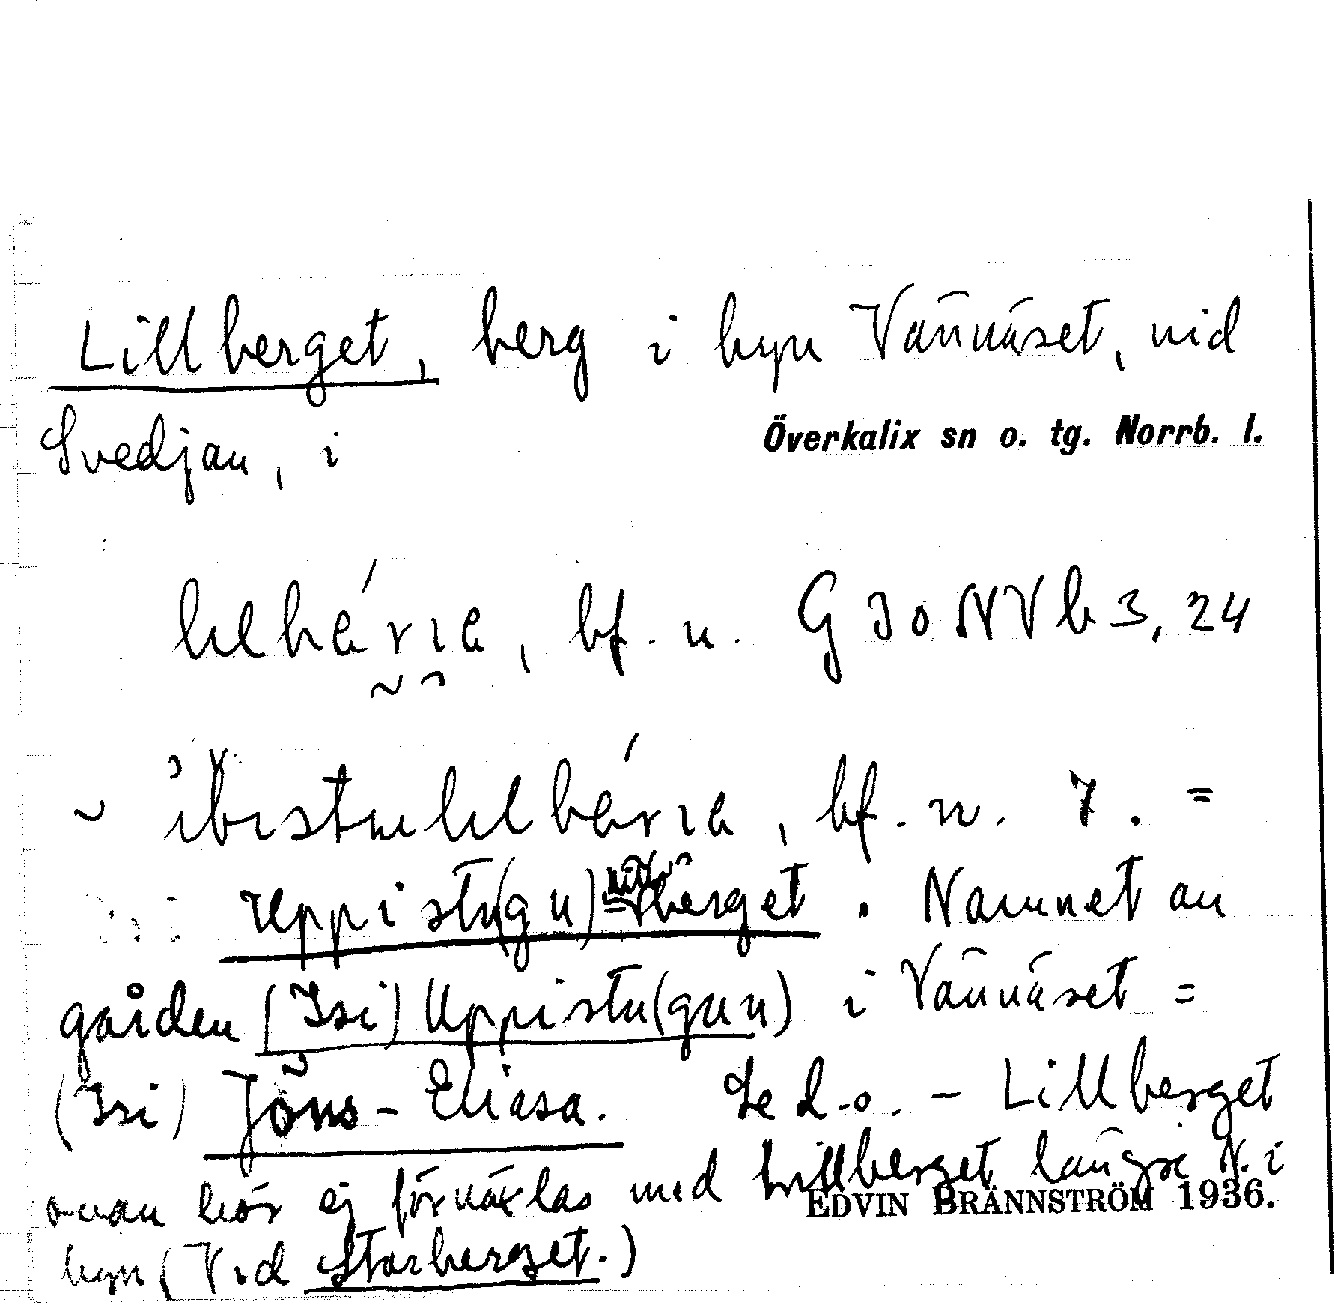 Lillberget, berg i byn Vännäset, vid
Svedjan, i Överkalix sn o. tg. Norrb. l.
bf. n. G 30 NV b 3, 24
~ bf. n. 7. =
Uppistu(gu)lillberget. Namnet av
gården (Isi) Uppistu(gun) i Vännäset =
(Isi) Jöns-Eliasa. Se d.o. – Lillberget
ovan bör ej förväxlas med Lillberget längre N. i
EDVIN BRÄNNSTRÖM 1936.
byn (Vid Storberget.)